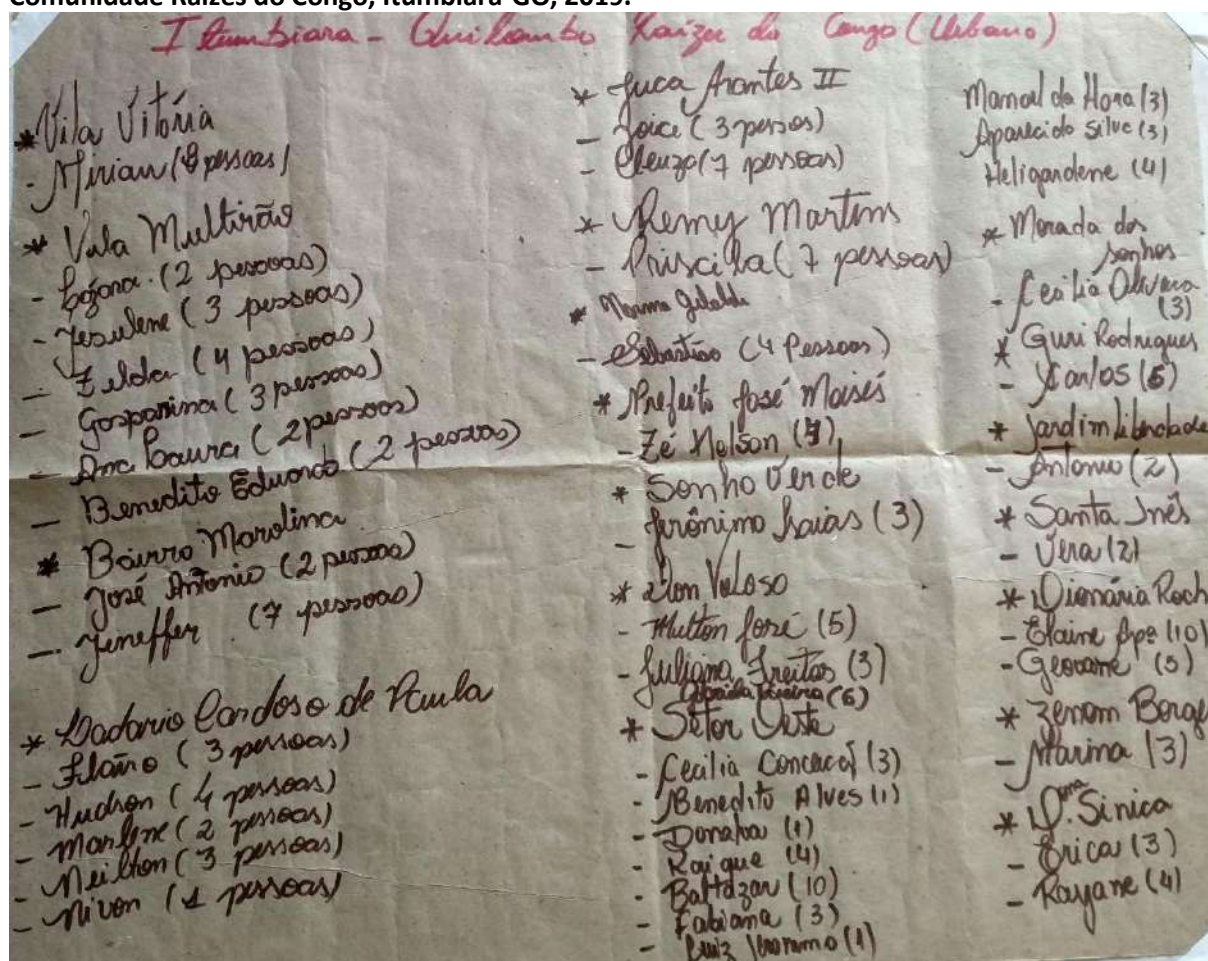 Comunidade Raízes do Congo, Itumbiara-GO, 2019.
Itumbiara - Quilombo Raízes do Congo (Urbano)
* Vila Vitória
- Mirian (8 pessoas)
* Vila Multirão
(2 pessoas)
- Jesulene (3 pessoas)
- Zelda (4 pessoas)
- Gosparina (3 pessoas)
- Ana Laura (2 pessoas)
- Benedito Eduardo (2 pessoas)
* Bairro Marolina
- José Antonio (2 pessoas)
- Jeneffer (7 pessoas)
* Ladario Cardoso de Paula
- (3 pessoas)
- Hudson (4 pessoas)
- Marlene (2 pessoas)
- Neilton (3 pessoas)
- Nivon (1 pessoas)
* Juca Arantes II
- Joice (3 pessoas)
- Cleuza (7 pessoas)
* Remy Martins
- Priscila (7 pessoas)
* Norma
- Sebastião (4 Pessoas)
* Prefeito José Moisés
- Zé Nelson
* Sonho Verde
- Jerônimo Isaias (3)
* Dom Veloso
- Milton José (5)
- Juliana Freitas (3)
(6)
* Setor Oeste
- Cecilia (3)
- Benedito Alves (1)
- (1)
- Raique (4)
- Baltazar (10)
- Fabiana (3)
- Luiz (1)
Manoel da Hora (3)
Aparecido Silva (3)
Heligardene (4)
* Morada dos
sonhos
- Cecilia Oliveira
(3)
* Guri Rodrigues
- Carlos (5)
* Jardim liberdade
- Antonio (2)
* Santa Inês
- Vera (2)
* Dionária Roch
- Elaine Apª (10)
- Geovane (5)
* Zenom Borge
- Marina (3)
* Dona Sinica
- Erica (3)
- Rayane (4)